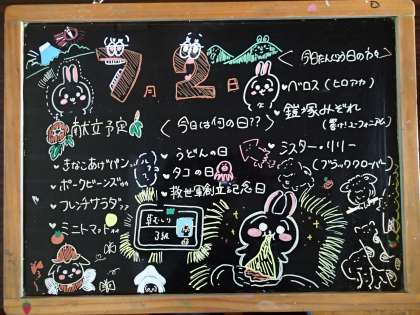 7月2日
<今日たんじょう日の方々>
♥ベロス(ヒロアカ)
♥鎧塚みぞれ
(響け!ユーフォニアム)
♥ミスター・リリー
(ブラッククローバー)
献立予定
♥きなこあげパン
♥ポークビーンズ
♥フレンチサラダ
♥ミニトマト
<今日は何の日??>
♥うどんの日
♥タコの日
♥救世軍創立記念日
3級